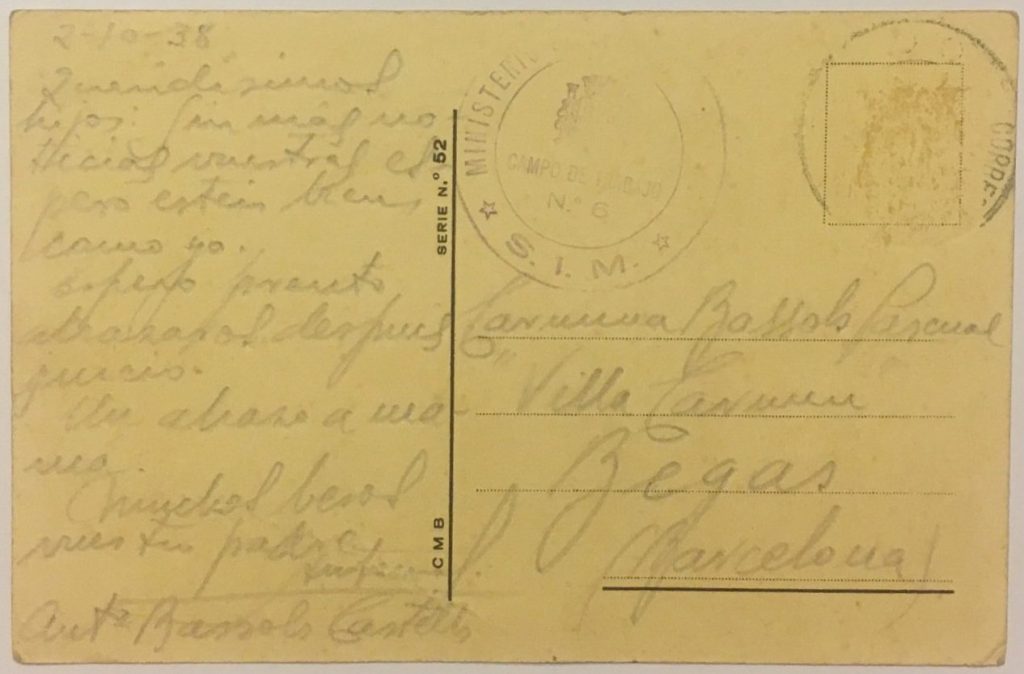 2-10-38
Queridisimos
hijos: Sin más no-
ticias vuestras es-
pero esteis bien
como yo.
espero pronto
abrazaros despues
juicio.
Un abrazo a ma-
ma.
Muchos besos
vuestro padre
Antº Bassols Castells
SERIE N.º 52
C M B
MINISTERIO
CAMPO DE TRABAJO
N.º 6
S. I. M.
CORRE
Carmina Bassols Pascual
"Villa Carmen"
Begas
(Barcelona)